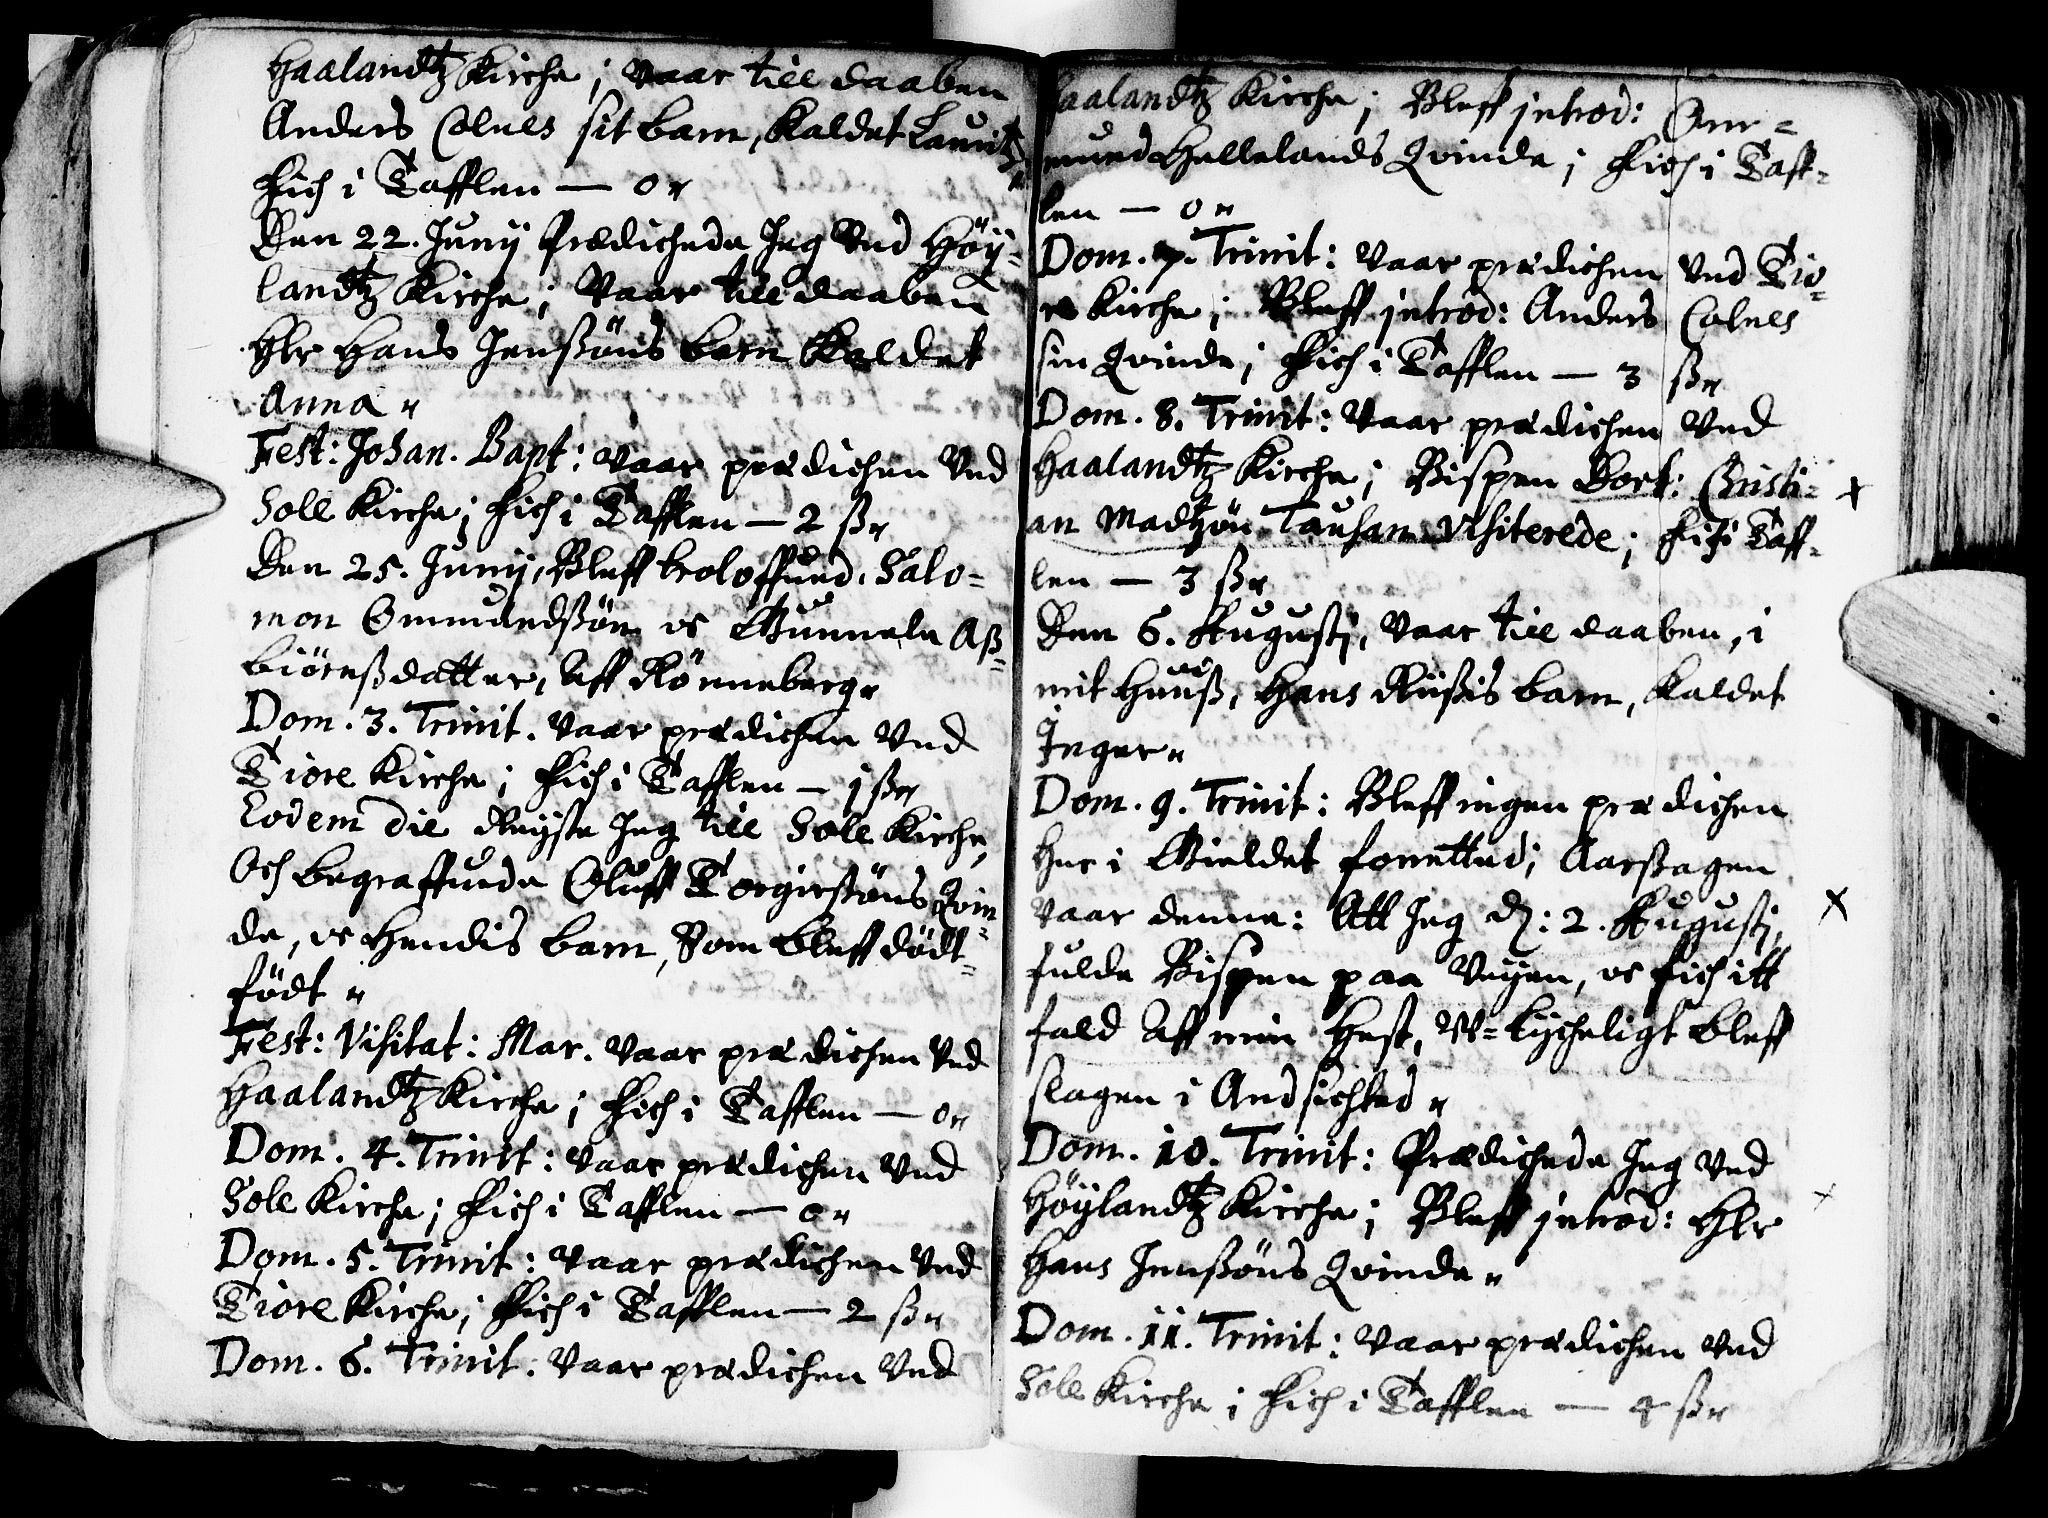 Haalandtz Kirche; Vaar till daaben
Anders Colnes sit barn, Kaldet Lauritz,
Fich i Tafflen — 0 "
Den 22. Junij Prædichede Jeg Ved Höÿ=
landtz Kirche; Vaar till daaben
Hlr Hans Jenßöns barn Kaldet
Anna "
Fest: Johan. Bapt: Vaar prædichen Ved
Sole Kirche; Fich i Tafflen — 2 ß "
Den 25. Junij, Bleff troloffued, Salo=
mon Ommundßön oc Gunnele Aß=
biörnßdatter, Aff Rönneberg "
Dom. 3. Trinit. Vaar prædichen Ved
Tiore Kirche; Fich i Tafflen — j ß "
Eodem die Reÿste Jeg till Sole Kirche,
Och begraffuede Oluff Torgierßöns Qvin=
de, oc Hendis barn, Som bleff dödt=
födt "
Fest: Visitat: Mar. Vaar prædichen Ved
Haalandtz Kirche; Fich i Tafflen — 0 "
Dom. 4. Trinit: Vaar prædichen Ved
Sole Kirche; Fich i Tafflen — 0 "
Dom. 5. Trinit: Vaar prædichen Ved
Tiore Kirche; Fich i Tafflen — 2 ß "
Dom. 6. Trinit. Vaar prædichen Ved
Haalandtz Kirche; Bleff jntrod: Om=
mund Hellelands Qvinde; Fich i Taff=
len — 0 "
Dom. 7. Trinit: Vaar prædichen Ved Tio=
re Kirche; Bleff jntrod: Anders Colnes
sin Qvinde; Fich i Tafflen — 3 ß "
Dom. 8. Trinit: Vaar prædichen Ved
Haalandtz Kirche; Bispen Doct: Christi=
an Madtzön Tausan Visiterede; Fich i Taff=
len — 3 ß "
Den 6. Augustj, Vaar till daaben, i
mit Huuß, Hans Rußis barn, Kaldet
Inger "
Dom. 9. Trinit: Bleff ingen prædichen
Her i Gieldet forretted; Aarßagen
Vaar denne: Att Jeg d: 2. Augustj,
fulde Bispen paa Veÿen, oc fich itt
fald Aff min Hest, W=Lycheligt bleff
slagen i Andsichted "
Dom. 10. Trinit: Prædichede Jeg Ved
Höÿlandtz Kirche; Bleff jntrod: Hlr
Hans Jenßöns Qvinde "
Dom. 11. Trinit: Vaar prædichen Ved
Sole Kirche; Fich i Tafflen — 4 ß "